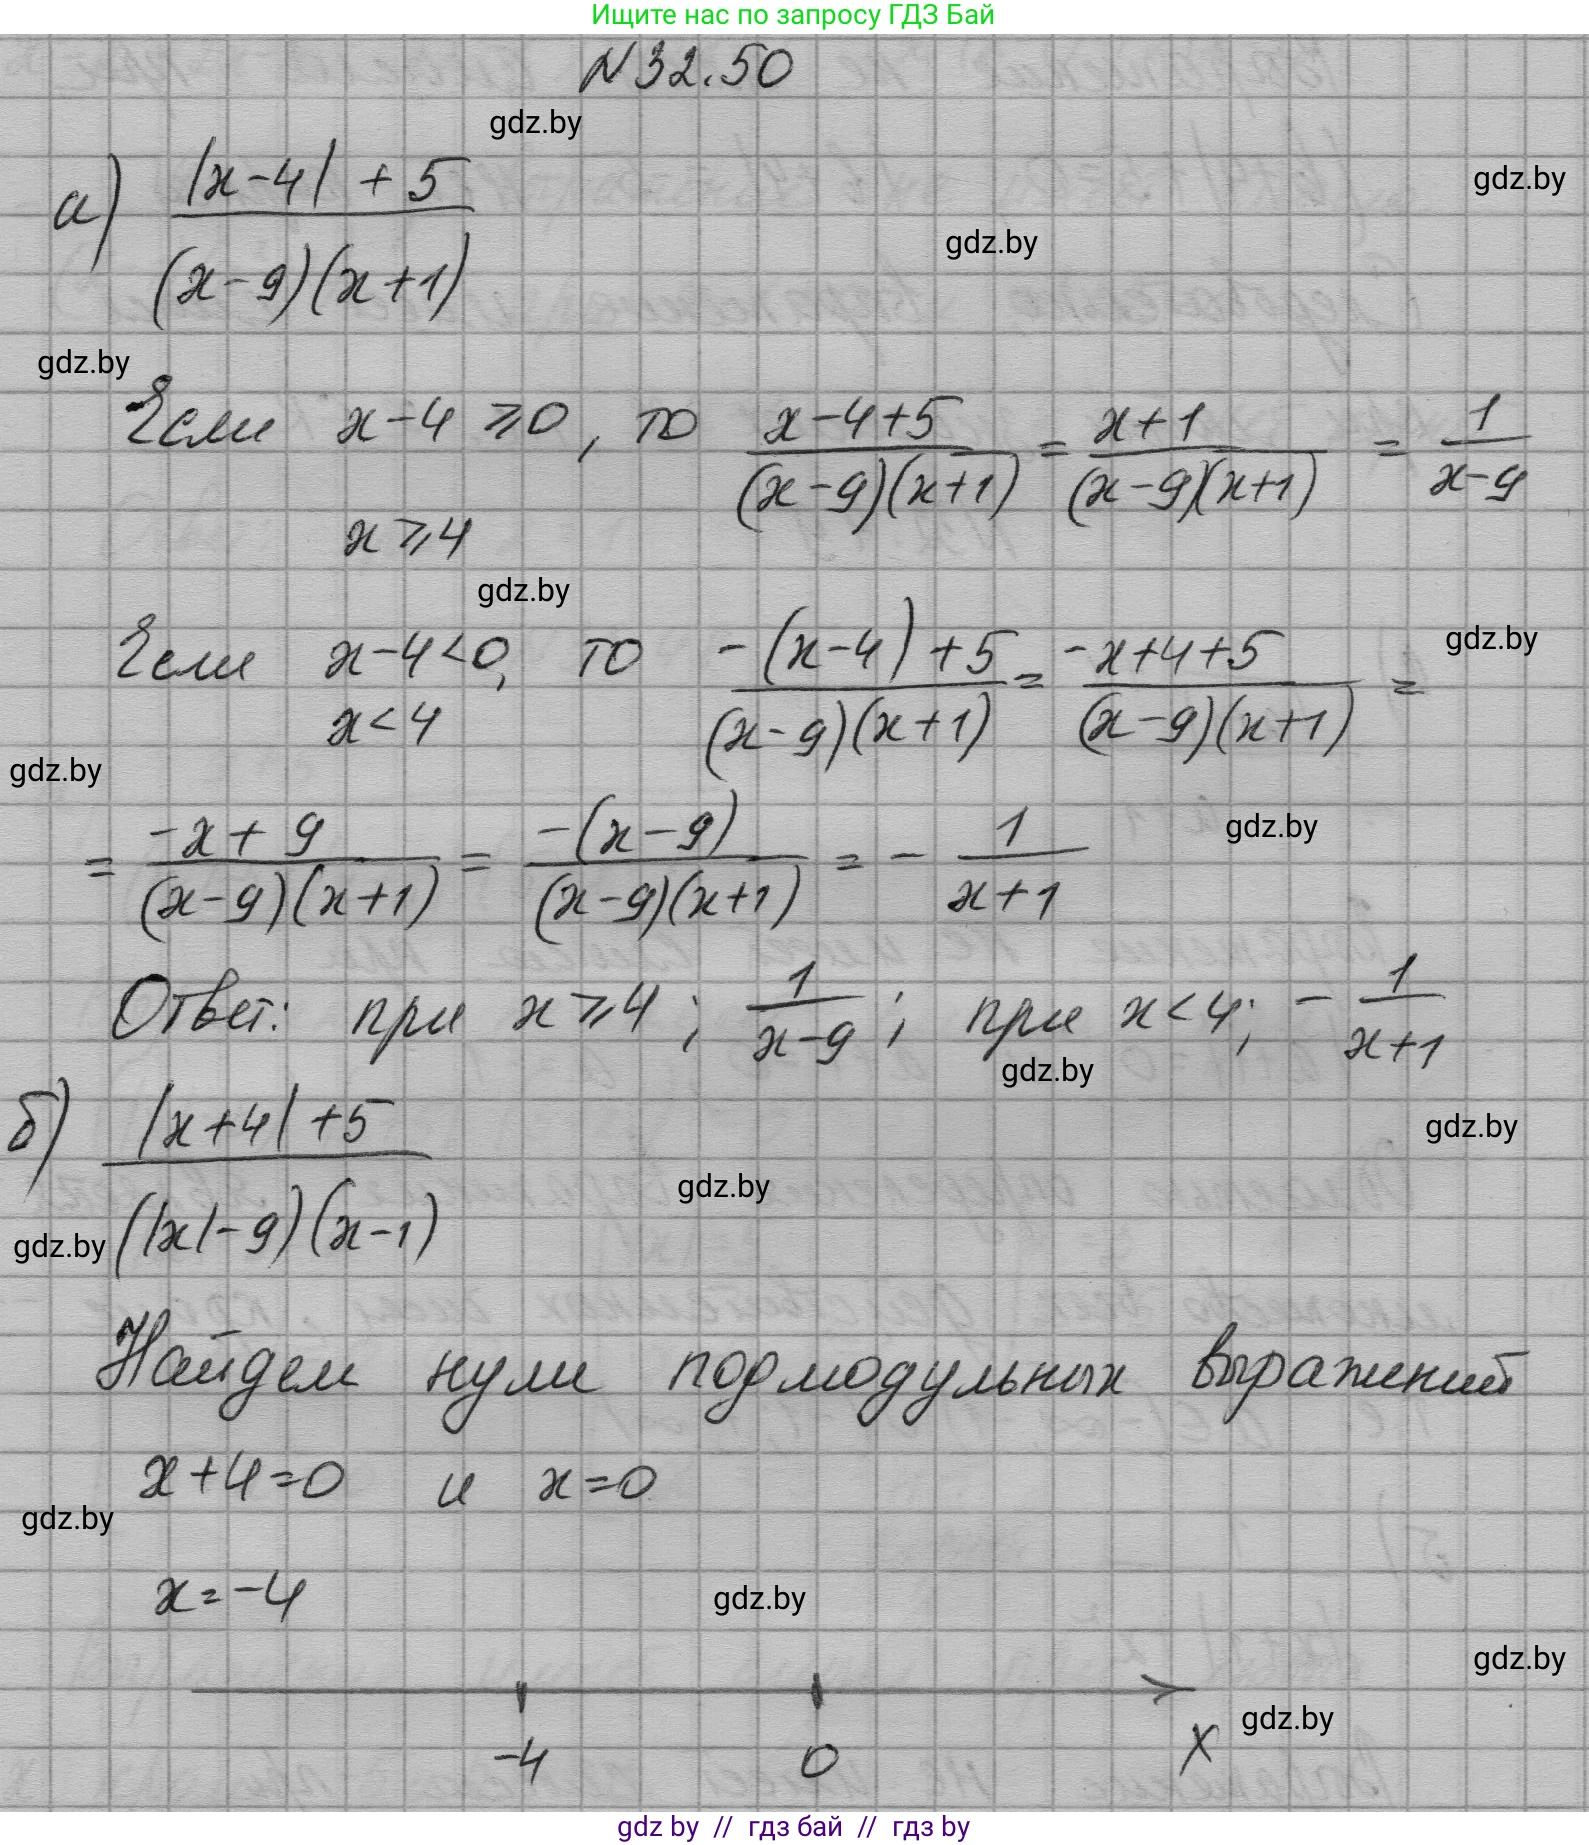 Ищите нас по запросу ГДЗ Бай
N 32.50
gdz.by
а) (|x-4| + 5) / ((x-9)(x+1))
gdz.by
gdz.by
gdz.by
Если x-4 ⩾ 0, то (x-4+5) / ((x-9)(x+1)) = (x+1) / ((x-9)(x+1)) = 1 / (x-9)
x ⩾ 4
gdz.by
Если x-4 < 0, то (-(x-4)+5) / ((x-9)(x+1)) = (-x+4+5) / ((x-9)(x+1)) =
gdz.by
x < 4
gdz.by
gdz.by
= (-x+9) / ((x-9)(x+1)) = (-(x-9)) / ((x-9)(x+1)) = - 1 / (x+1)
Ответ: при x ⩾ 4; 1 / (x-9); при x < 4; - 1 / (x+1)
gdz.by
б) (|x+4| + 5) / ((|x|-9)(x-1))
gdz.by
gdz.by
gdz.by
Найдем нули подмодульных выражений
x+4=0 и x=0
gdz.by
x=-4
gdz.by
gdz.by
gdz.by
-4 0 X
gdz by // гдз бай // гдз by